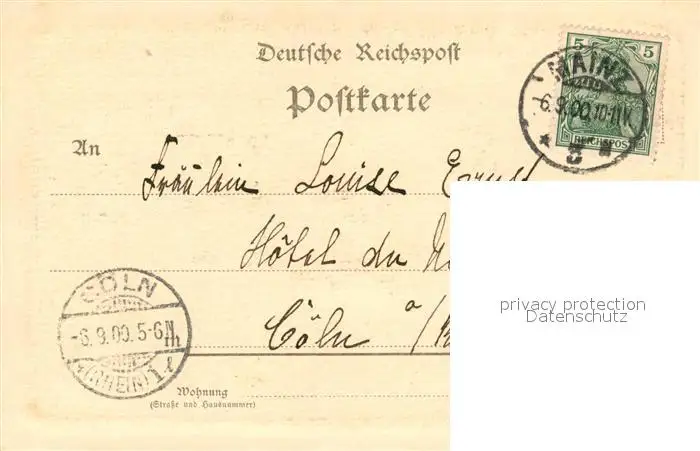 Deutsche Reichspost
Postkarte
5 5
MAINZ
-6.9.00.10-11V.
* 8 *
REICHSPOST
An
Fräulein Louise
Hôtel du
Cöln a/
CÖLN
-6.9.00.5-6N
(RHEIN) 1
Wohnung
(Straße und Hausnummer)
privacy protection
Datenschutz